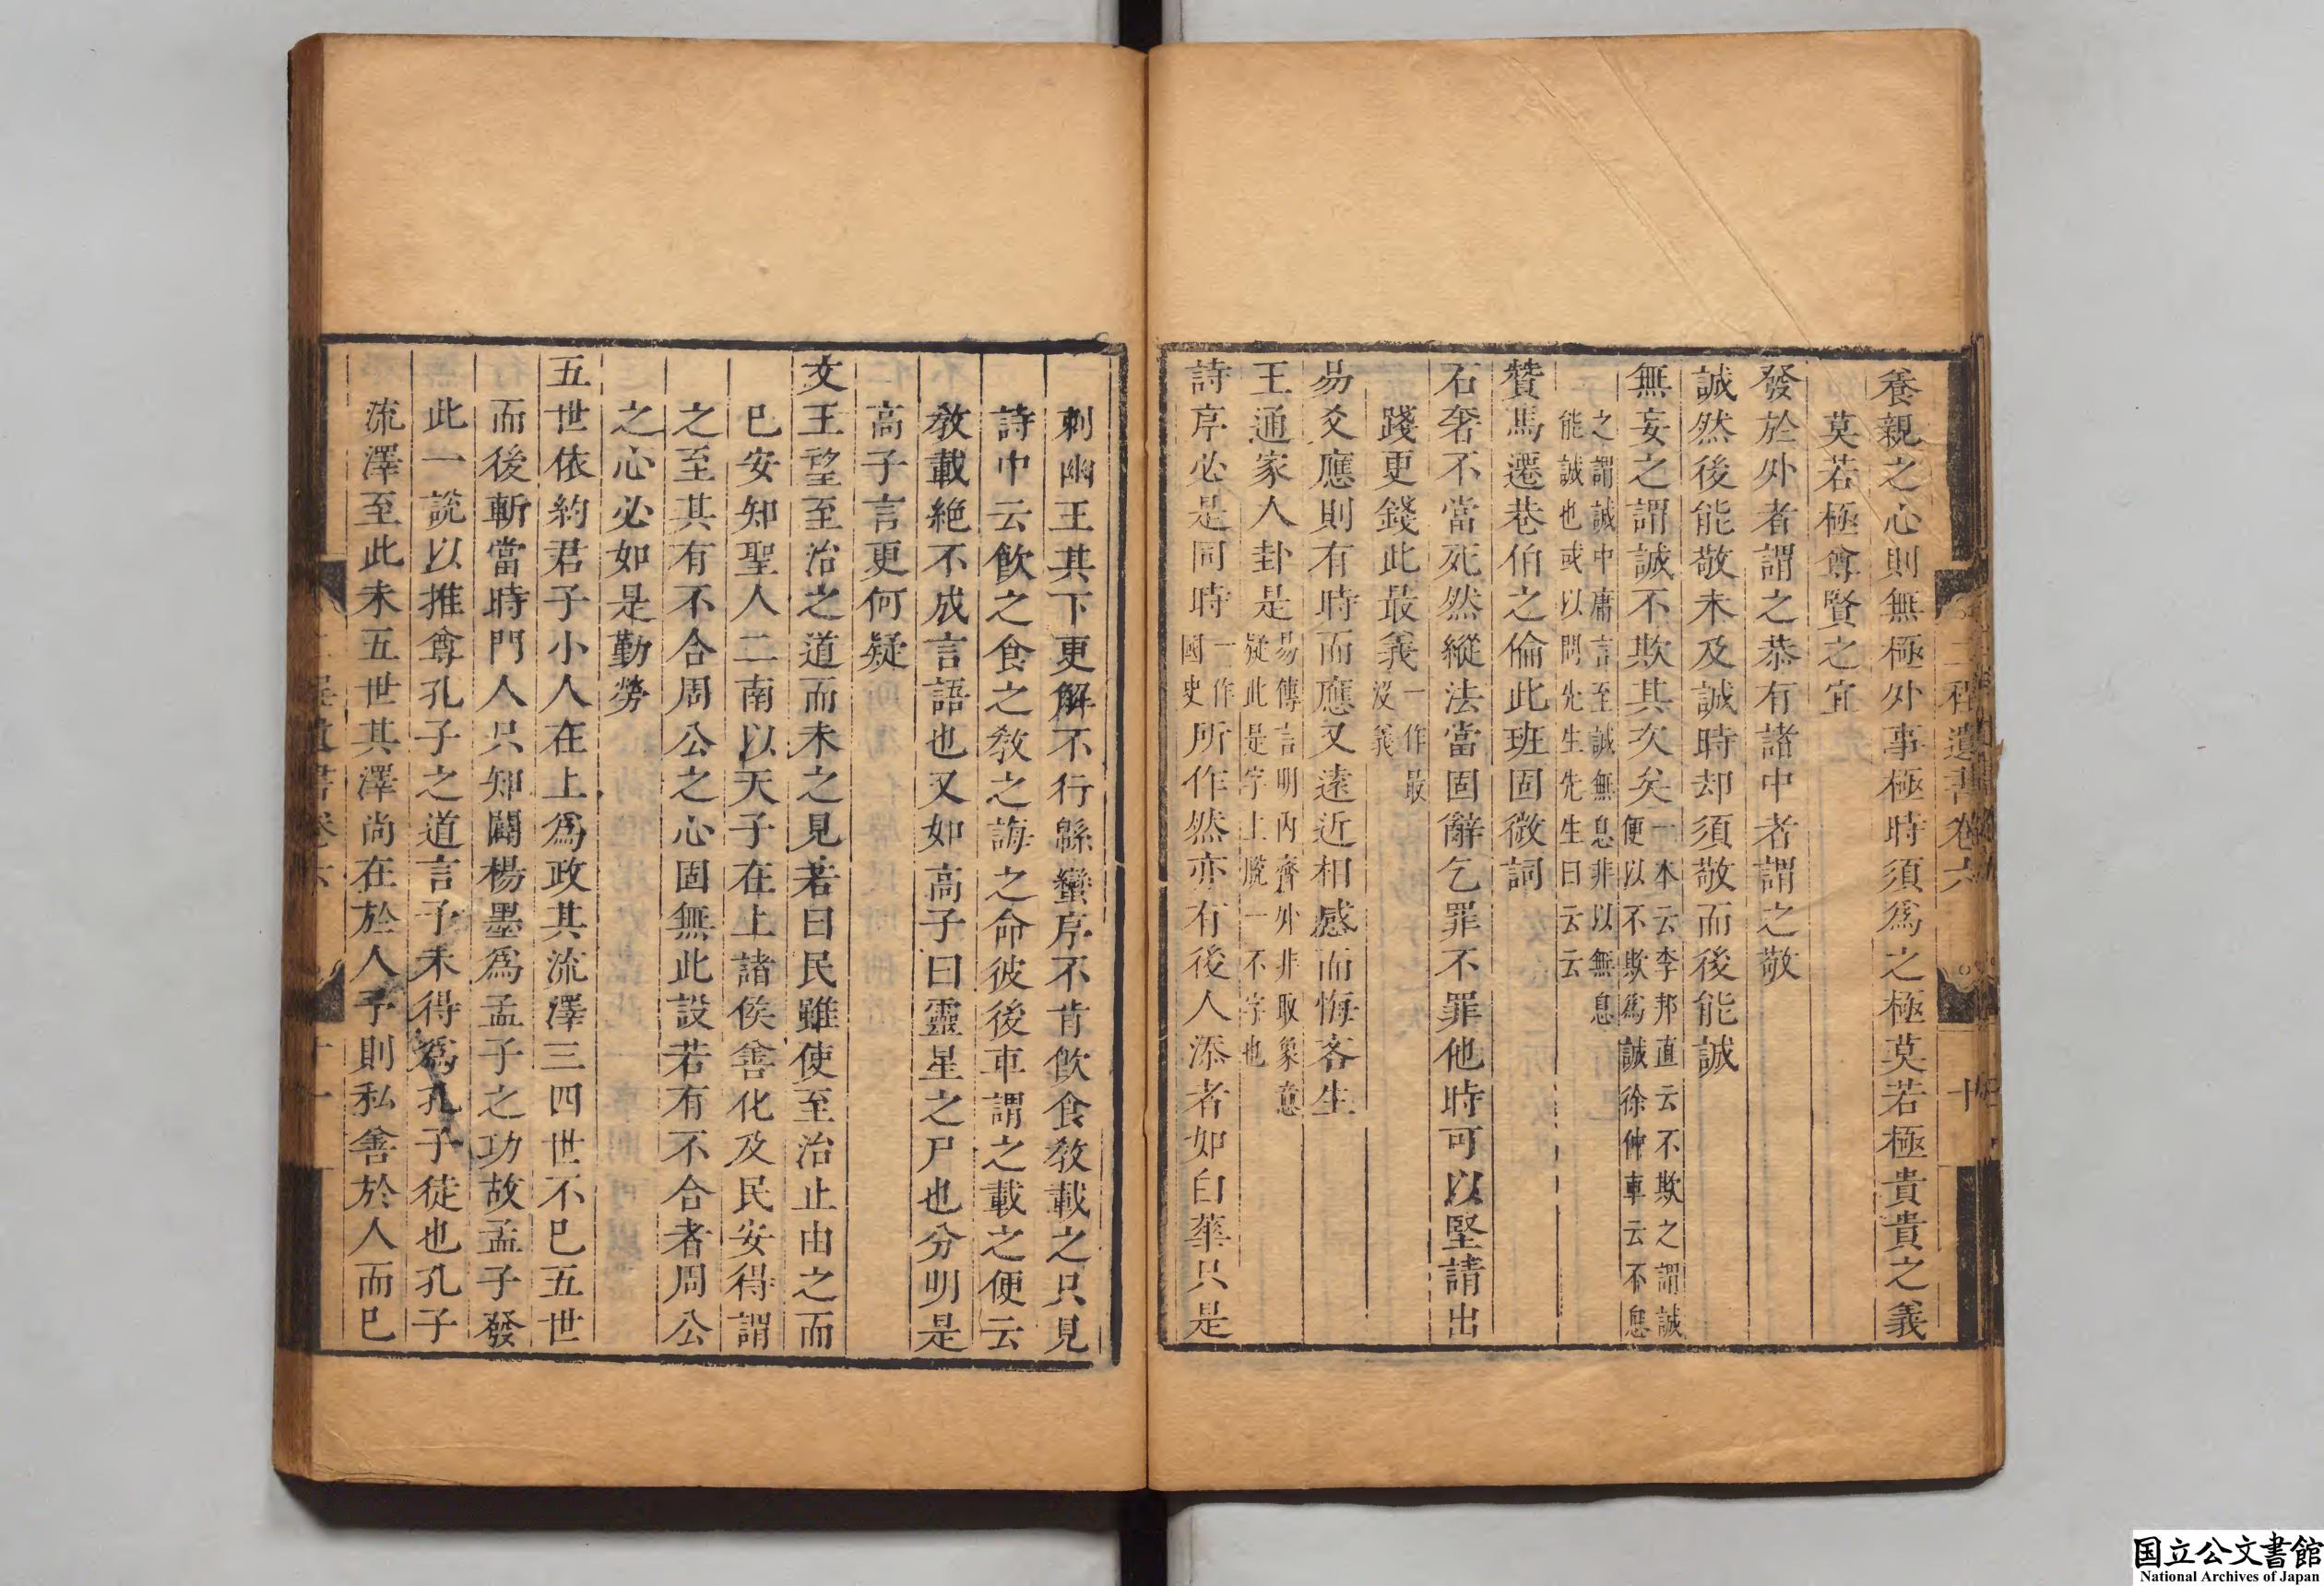 二程遺書卷六
十
養親之心則無極外事極時須爲之極莫若極貴貴之義
莫若極尊賢之宜
發於外者謂之恭有諸中者謂之敬
誠然後能敬未及誠時却須敬而後能誠
無妄之謂誠不欺其次矣一本云李邦直云不欺之謂誠
便以不欺爲誠徐仲車云不息
之謂誠中庸言至誠無息非以無息
能誠也或以問先生先生曰云云
贊馬遷巷伯之倫此班固微詞
石奢不當死然縱法當固辭乞罪不罪他時可以堅請出
踐更錢此最義一作最
沒義
易爻應則有時而應又遠近相感而悔吝生
王通家人卦是易傳言明內齊外非取象意
疑此是字上脫一不字也
詩序必是同時一作
國史所作然亦有後人添者如白華只是
刺幽王其下更解不行緜蠻序不肯飲食教載之只見
詩中云飲之食之教之誨之命彼後車謂之載之便云
教載絶不成言語也又如高子曰靈星之尸也分明是
高子言更何疑
文王望至治之道而未之見若曰民雖使至治止由之而
已安知聖人二南以天子在上諸侯善化及民安得謂
之至其有不合周公之心固無此設若有不合者周公
之心必如是勤勞
五世依約君子小人在上爲政其流澤三四世不已五世
而後斬當時門人只知闢楊墨爲孟子之功故孟子發
此一說以推尊孔子之道言予未得爲孔子徒也孔子
流澤至此未五世其澤尚在於人予則私善於人而已
国立公文書館
National Archives of Japan